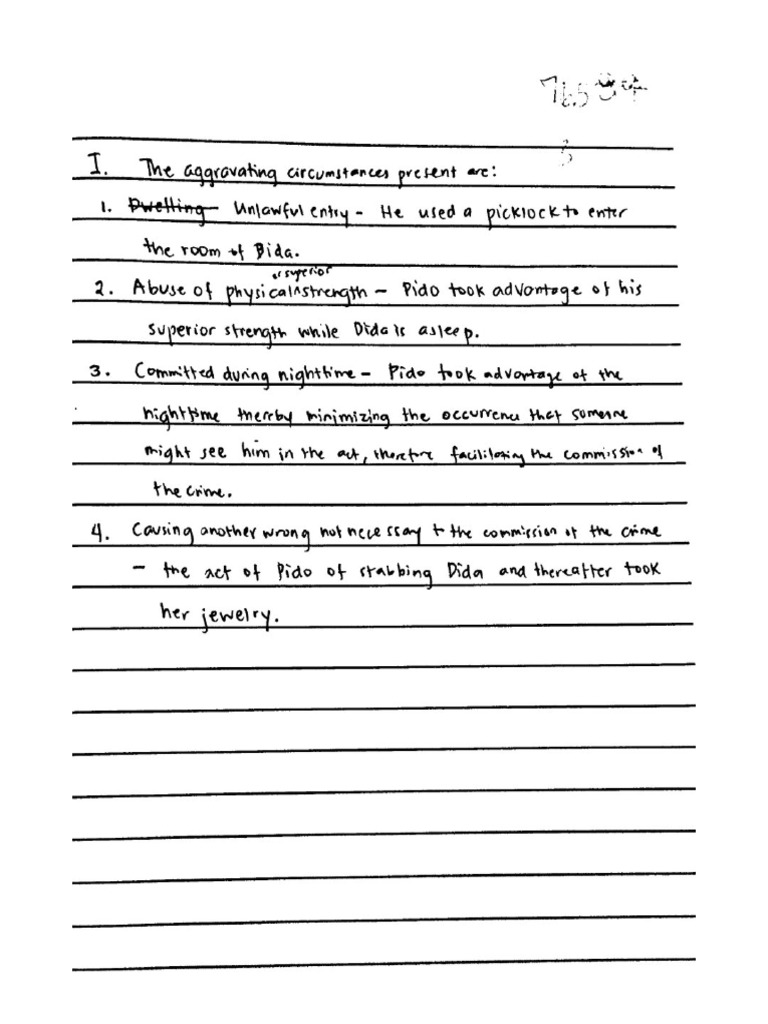 76.5
3
I. The aggravating circumstances present are:
1. Dwelling Unlawful entry - He used a picklock to enter
the room of Dida.
or superior
2. Abuse of physical ^ strength - Pido took advantage of his
superior strength while Dida is asleep.
3. Committed during nighttime - Pido took advantage of the
nighttime thereby minimizing the occurrence that someone
might see him in the act, therefore facilitating the commission of
the crime.
4. Causing another wrong not necessay to the commission of the crime
- the act of Pido of stabbing Dida and thereafter took
her jewelry.